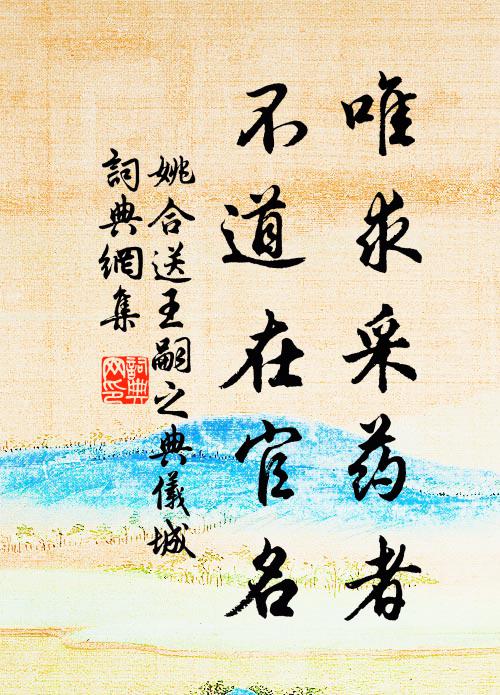 唯求采药者
不道在官名
姚合送王嗣之典儀城
詞典網集
詞典網印